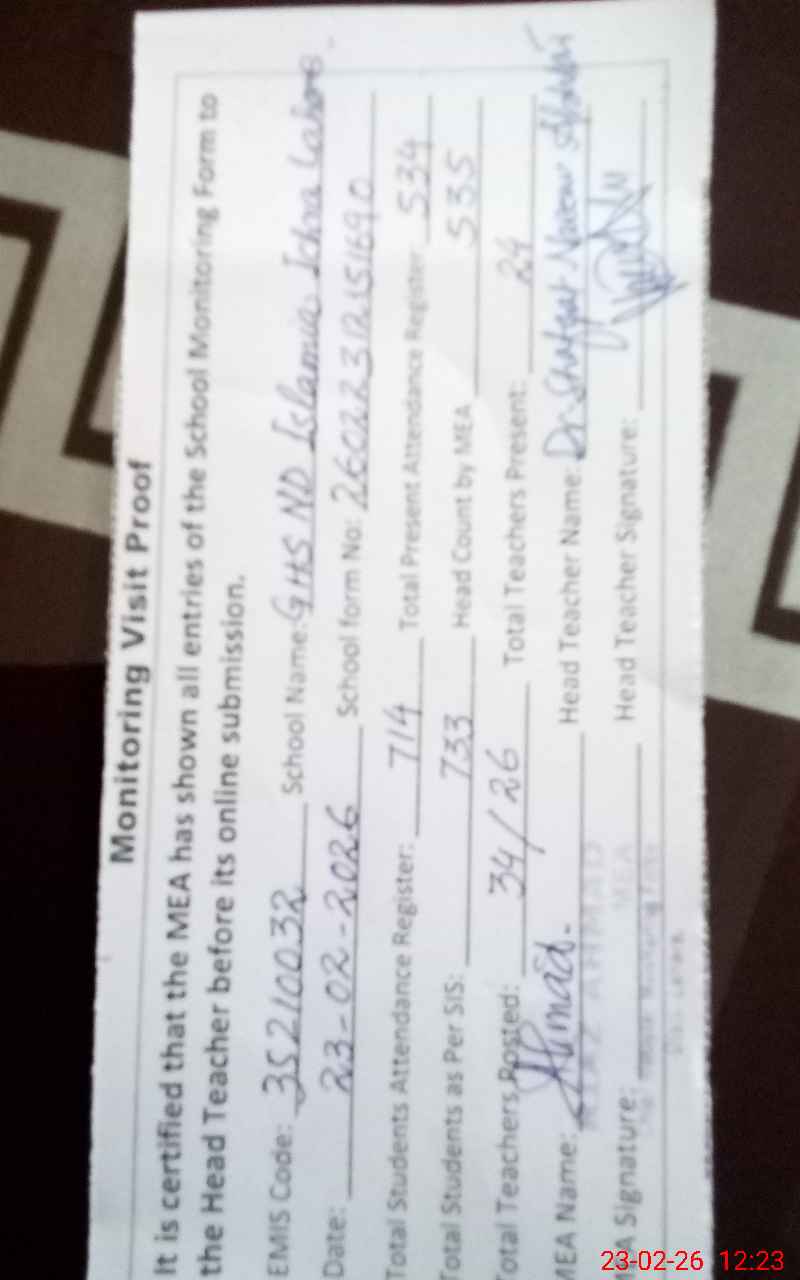 Monitoring Visit Proof
It is certified that the MEA has shown all entries of the School Monitoring Form to
the Head Teacher before its online submission.
EMIS Code: 35210032 School Name: GHS ND Islamia Ichra Lahore.
Date: 23-02-2026 School form No:
Total Students Attendance Register: 714 Total Present Attendance Register: 534
Total Students as Per SIS: 733 Head Count by MEA 535
Total Teachers Posted: 34/26 Total Teachers Present: 24
MEA Name: Ahmad. Head Teacher Name: Dr. Shafqat
AHMAD
MEA
MEA Signature: Head Teacher Signature:
23-02-26 12:23